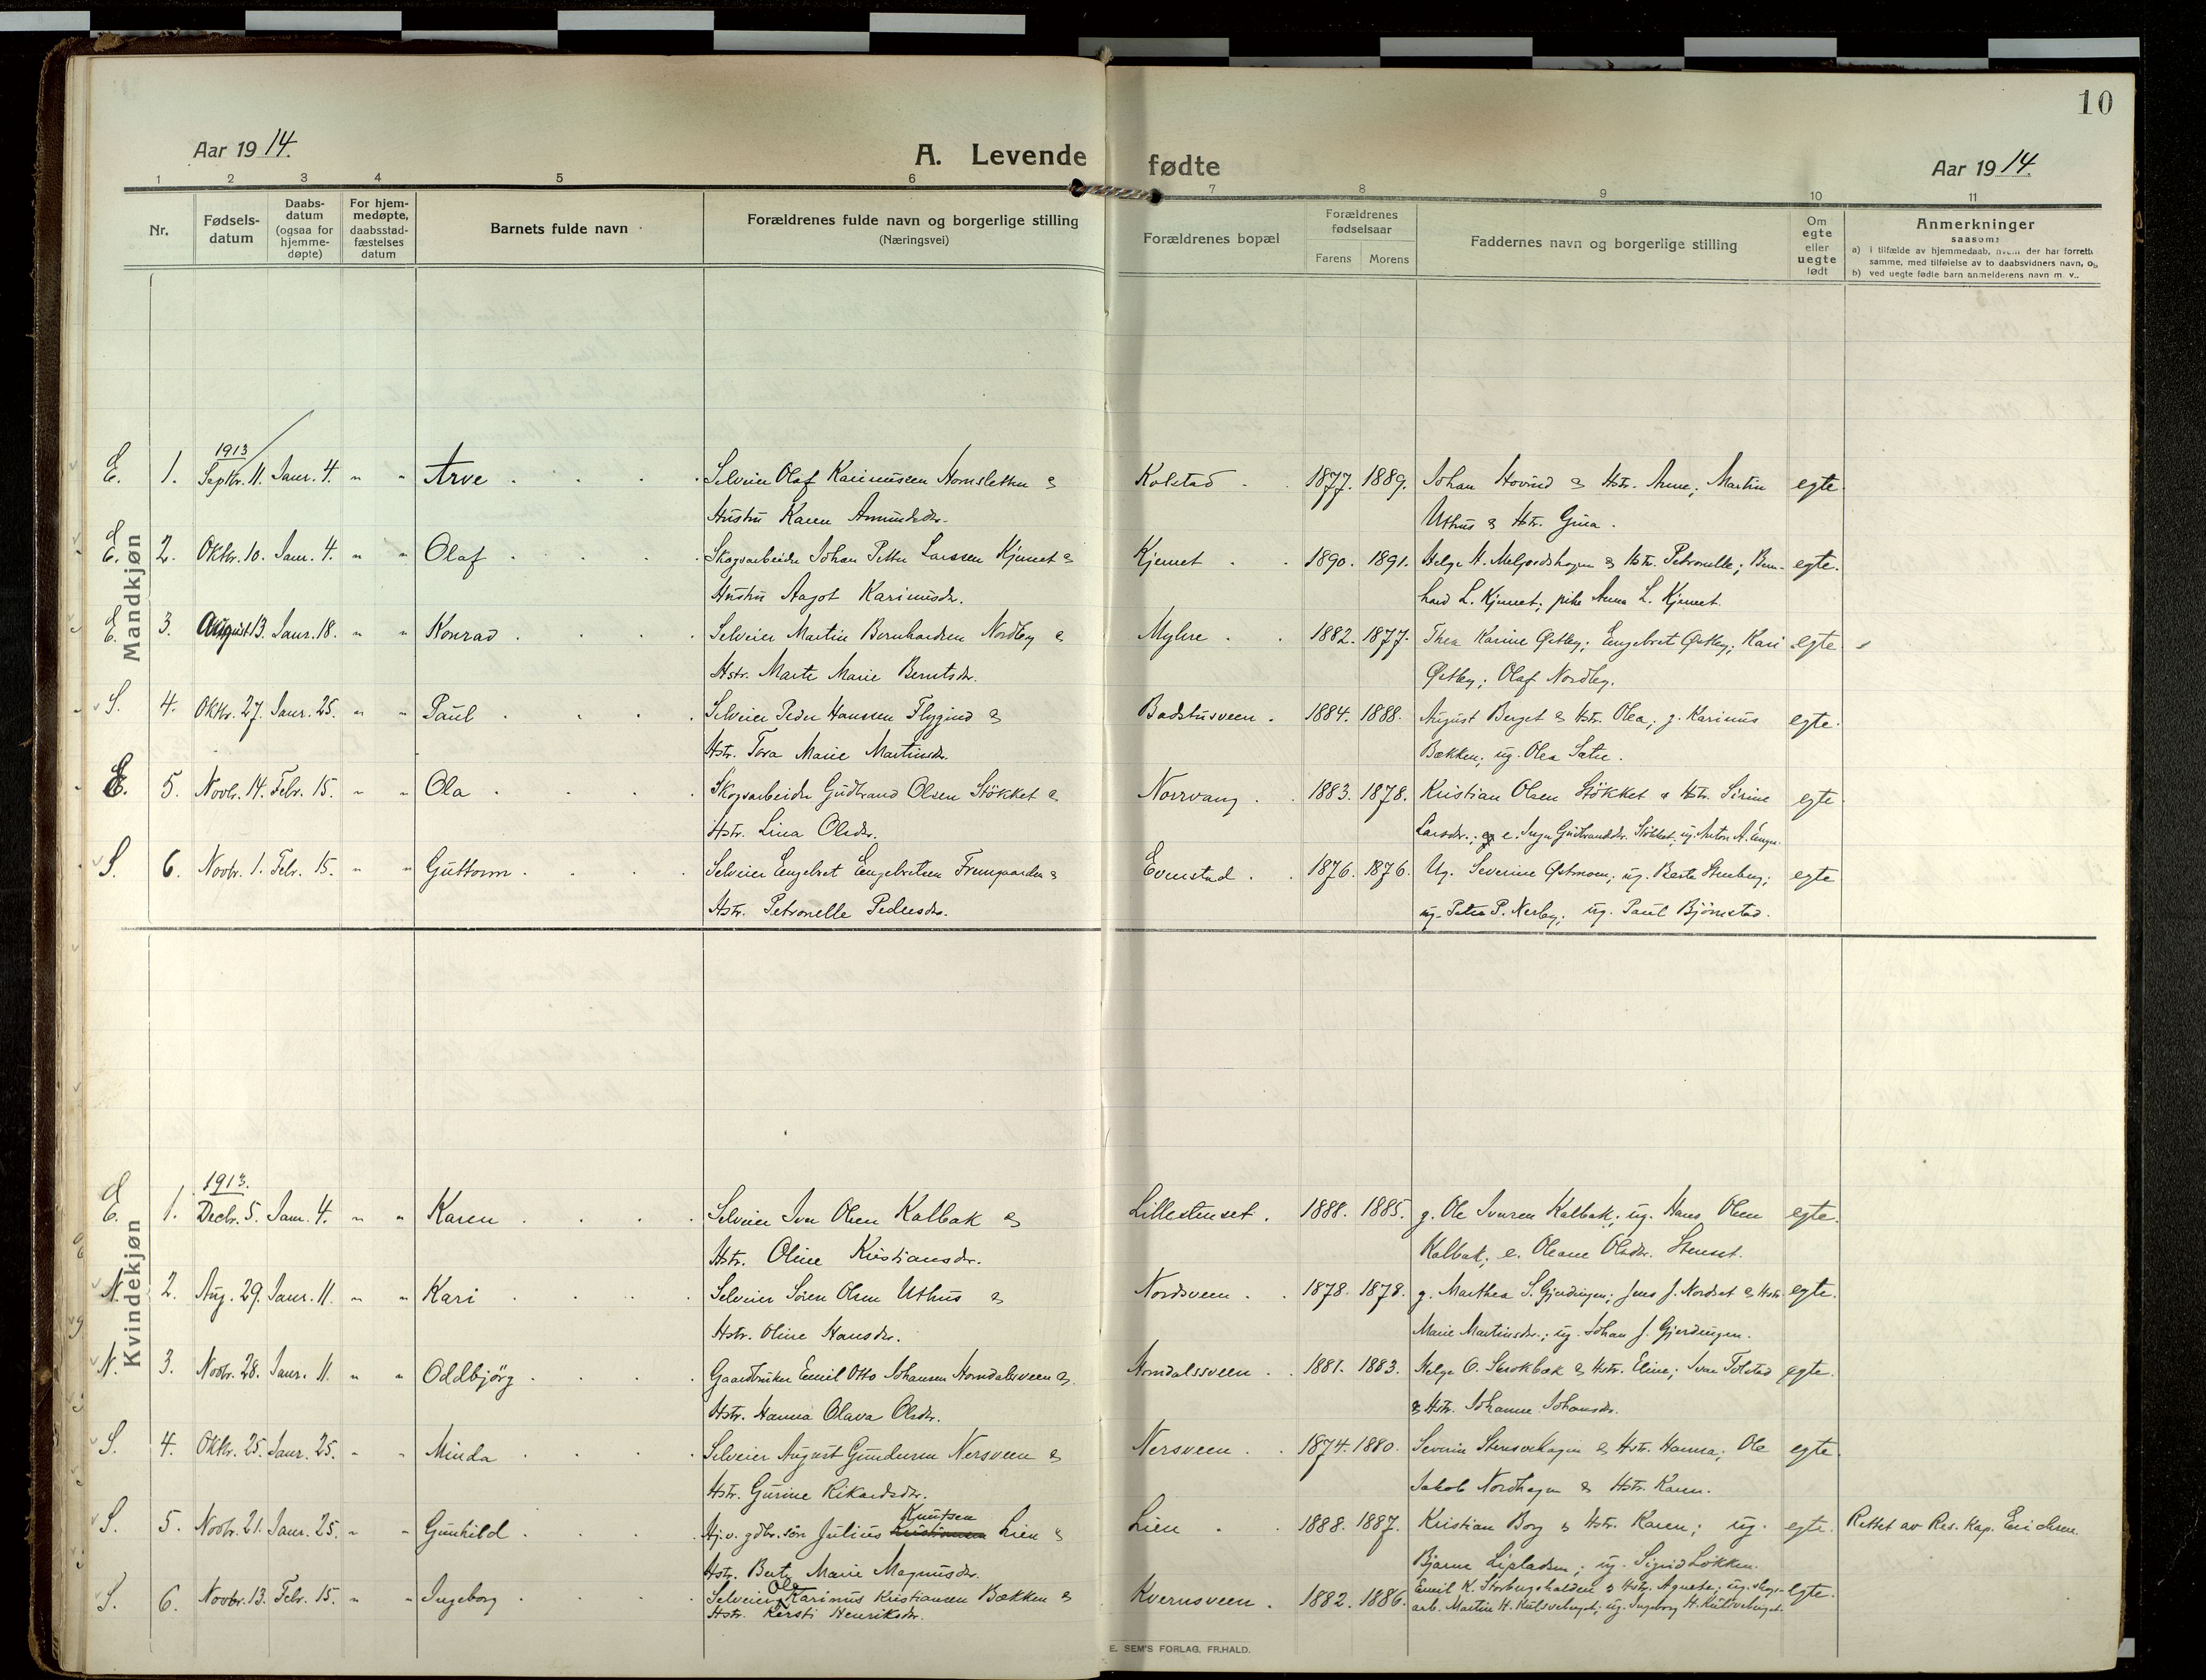 10
Aar 1914.
A. Levende fødte
Aar 1914.
1 2 3 4 5 6 7 8 9 10 11
Nr.
Fødsels-
datum
Daabs-
datum
(ogsaa for
hjemme-
døpte)
For hjem-
medøpte,
daabsstad-
fæstelses
datum
Barnets fulde navn
Forældrenes fulde navn og borgerlige stilling
(Næringsvei)
Forældrenes bopæl
Forældrenes
fødselsaar
Farens Morens
Faddernes navn og borgerlige stilling
Om
egte
eller
uegte
født
Anmerkninger
saasom:
a) i tilfælde av hjemmedaab, hvem der har forrett
samme, med tilføielse av to daabsvidners navn, og
b) ved uegte fødte barn anmelderens navn m. v..
Mandkjøn
1913
E. 1. Septbr. 11. Janr. 4. " " Arve . Selveier Olaf Karinusen Hornsletten & Kolstad . 1877. 1889. Johan Hovind & Hstr. Anne; Martin egte.
Hustru Karen Amundsdr. Uthus & Hstr. Gina.
E. 2. Oktbr. 10. Janr. 4. " " Olaf . Skogsarbeider Johan Petter Larssen Kjernet & Kjernet . 1890. 1891. Helge H. Melgardshagen & Hstr. Petronelle; Bern- egte.
Hustru Aagot Karinusdr. hard L. Kjernet; pike Anna L. Kjernet.
E. 3. August 13. Janr. 18. " " Konrad . Selveier Martin Bernhardsen Nordby & Myhre . 1882. 1877. Thea Karine Østby; Engebret Østby; Kari egte
Hstr. Marte Marie Berntsdr. Østby; Olaf Nordby.
S. 4. Oktbr. 27. Janr. 25. " " Paul . Selveier Peder Hanssen Flygind & Badstusveen . 1884. 1888. August Berget & Hstr. Olea; g. Karinus egte.
Hstr. Tora Marie Martinsdr. Bækken; ug. Olea Sætre.
E. 5. Novbr. 14. Febr. 15. " " Ola . Skogsarbeider Gudbrand Olsen Stökket & Norrvang . 1883. 1878. Kristian Olsen Stökket & Hstr. Sirine egte
Hstr. Lina Olsdr. Larsdr.; e. Inga Gudbrandsdr. Stökket; ug. Anton A. Enger.
S. 6. Novbr. 1. Febr. 15. " " Guttorm . Selveier Engebret Engebretsen Fremgaarden & Evenstad . 1876. 1876. Ug. Severine Østmoen; ug. Berte Stenberg; egte
Hstr. Petronelle Pedersdr. ug. Petra P. Nerby; ug. Paul Björnstad.
Kvindekjøn
1913.
E. 1. Decbr. 5. Janr. 4. " " Karen . Selveier Iver Olsen Kalbak & Lillestenset . 1888. 1885. g. Ole Iversen Kalbak; ug. Hans Olsen egte.
Hstr. Oline Kristiansdr. Kalbak; e. Oleane Olsdr. Stenset.
N. 2. Aug. 29. Janr. 11. " " Kari . Selveier Sören Olsen Uthus & Nordsveen . 1878. 1878. g. Marthea S. Gjerdingen; Jens J. Nordset & Hstr. egte.
Hstr. Oline Hansdr. Marie Martinsdr.; ug. Johan J. Gjerdingen.
N. 3. Novbr. 28. Janr. 11. " " Oddbjörg . Gaardbruker Emil Otto Johansen Horndalsveen & Horndalssveen . 1881. 1883. Helge O. Storkbæk & Hstr. Eline; Ivar Tolstad egte.
Hstr. Hanna Olava Olsdr. & Hstr. Johanne Johansdr.
S. 4. Oktbr. 25. Janr. 25. " " Minda . Selveier August Gundersen Nersveen & Nersveen . 1874. 1880. Severin Stensvehagen & Hstr. Hanna; Ole egte.
Hstr. Gurine Rikardsdr. Jakob Nordhagen & Hstr. Karen.
Knutsen
S. 5. Novbr. 21. Janr. 25. " " Gunhild . Hj.v. gdbr. sön Julius Kristiansen Lien & Lien . 1888. 1887. Kristian Borg & Hstr. Karen; ug. egte. Rettet av Res. Kap. Erichsen.
Hstr. Berte Marie Magnusdr. Bjarne Lisladsen; ug. Sigrid Løkken.
Ole
S. 6. Novbr. 13. Febr. 15. " " Ingeborg . Selveier Karinus Kristiansen Bækken & Kvernsveen . 1882. 1886. Emil K. Storbergshalden & Hstr. Agnete; ug. skogs- egte.
Hstr. Kersti Henriksdr. arb. Martin H. Kulsveberget; ug. Ingeborg H. Kulsveberget.
E. SEM'S FORLAG, FR.HALD.